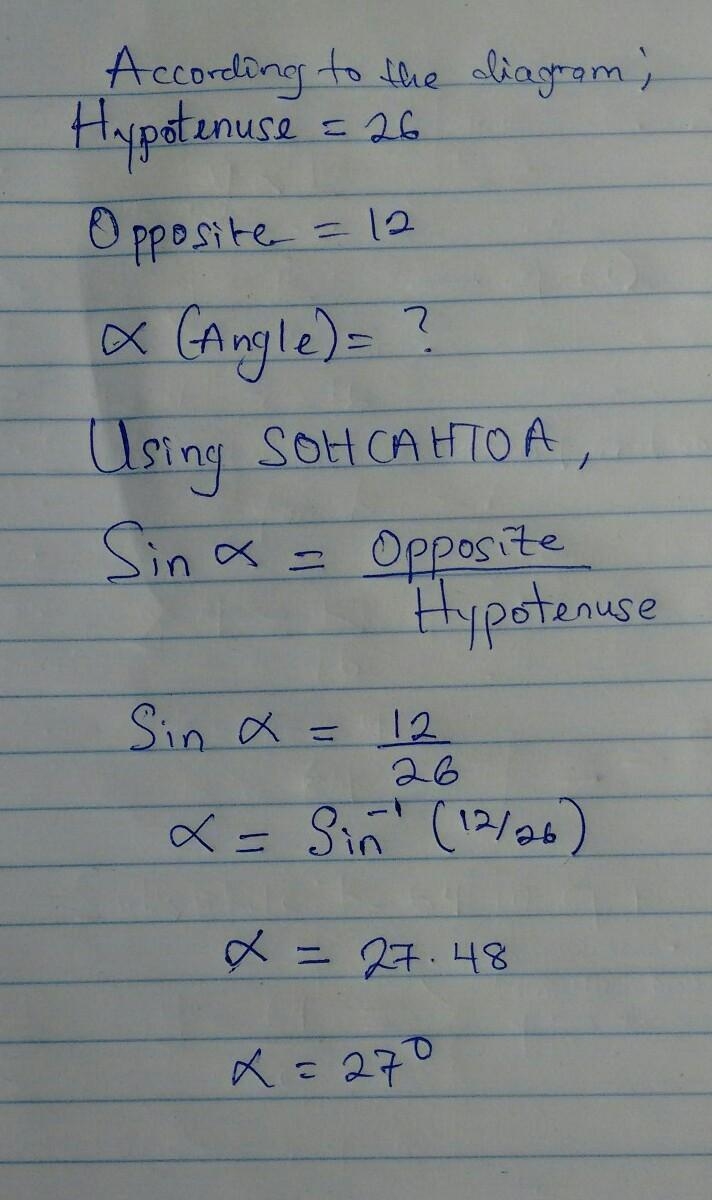 According to the diagram;
Hypotenuse = 26
Opposite = 12
α (Angle) = ?
Using SOHCAHTOA,
Sin α = Opposite
Hypotenuse
Sin α = 12
26
α = Sin⁻¹ (12/26)
α = 27.48
α = 27°